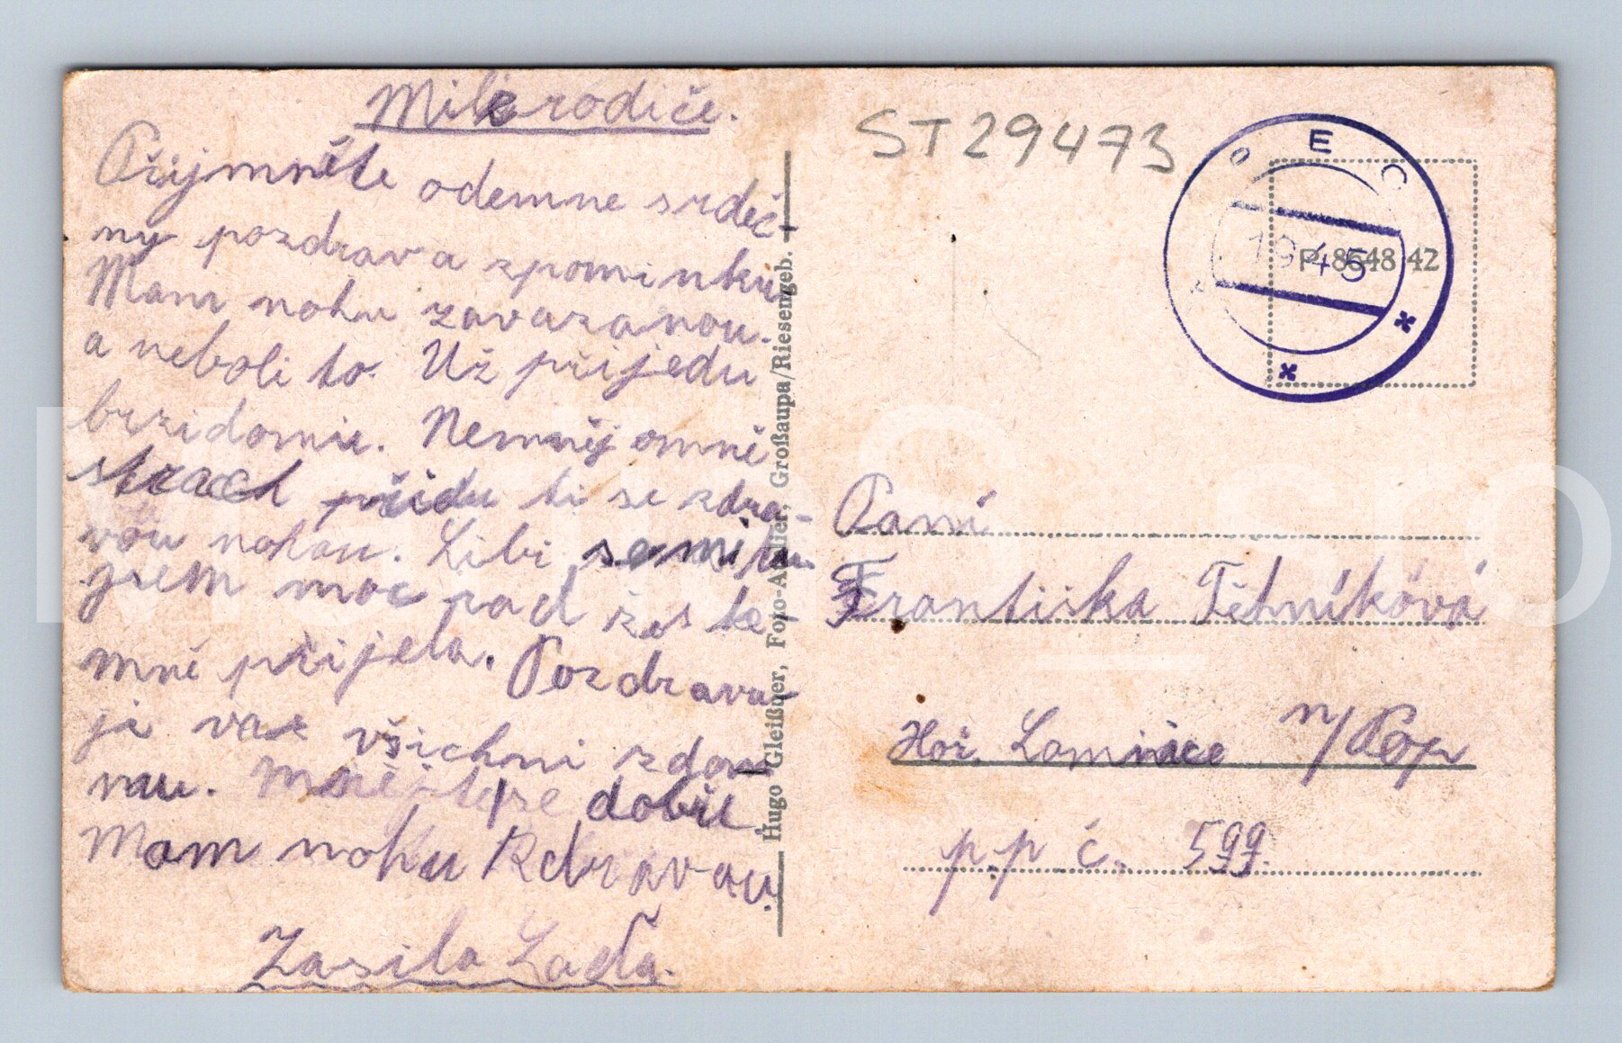 Milé rodiče.
Přijměte odemne srdeč-
ny pozdrava zpominku
Mam nohu zavazanou.
a neboli to. Už přijedu
brzidomu. Nemněj omně
strach přidu ti se zdra-
vou nohou. Libi semitu
jsem moc rad žes ke
mně přijela. Pozdravu-
ji vas všichni zdom
mu. dobře.
Mam nohu zdravou.
Zasila Laďa.
Hugo Gleißner, Foto-Atelier, Großaupa/Riesengeb.
ST29473
P. 8648 42
1945
Paní
Frantiska Těhníková
Hoř. Lomnice n/Pop
p.p č. 599.